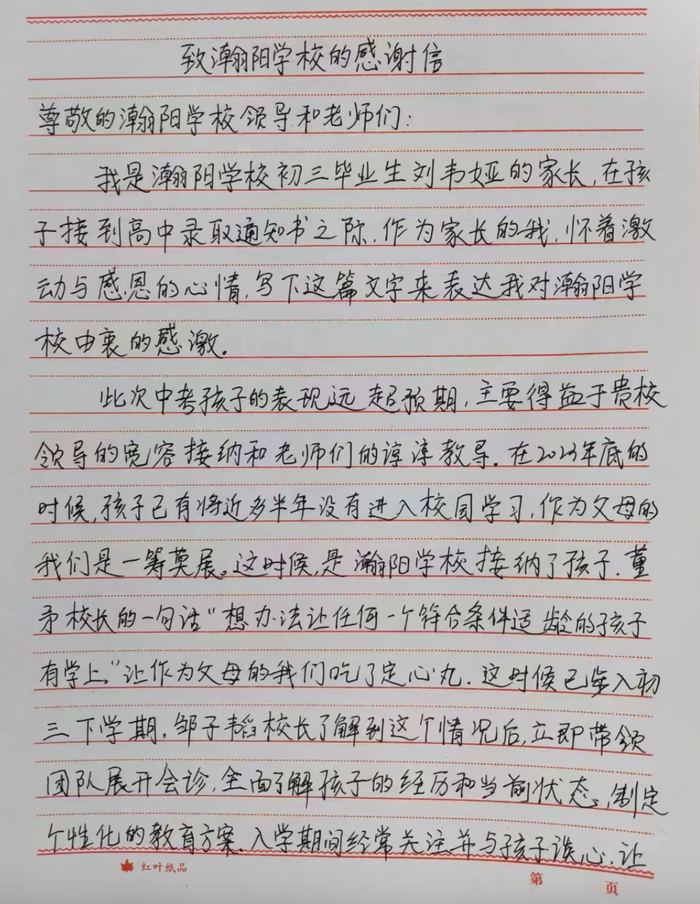 致瀚阳学校的感谢信
尊敬的瀚阳学校领导和老师们:
我是瀚阳学校初三毕业生刘韦娅的家长,在孩
子接到高中录取通知书之际,作为家长的我,怀着激
动与感恩的心情,写下这篇文字来表达我对瀚阳学
校由衷的感激.
此次中考孩子的表现远超预期,主要得益于贵校
领导的宽容接纳和老师们的谆谆教导.在2023年底的
时候,孩子已有将近多半年没有进入校园学习,作为父母的
我们是一筹莫展。这时候,是瀚阳学校接纳了孩子.董
矛校长的一句话“想办法让任何一个符合条件适龄的孩子
有学上,”让作为父母的我们吃了定心丸.这时候已步入初
三下学期,邹子韬校长了解到这个情况后,立即带领
团队展开会诊,全面了解孩子的经历和当前状态,制定
个性化的教育方案.入学期间经常关注并与孩子谈心,让
红叶纸品
第 页